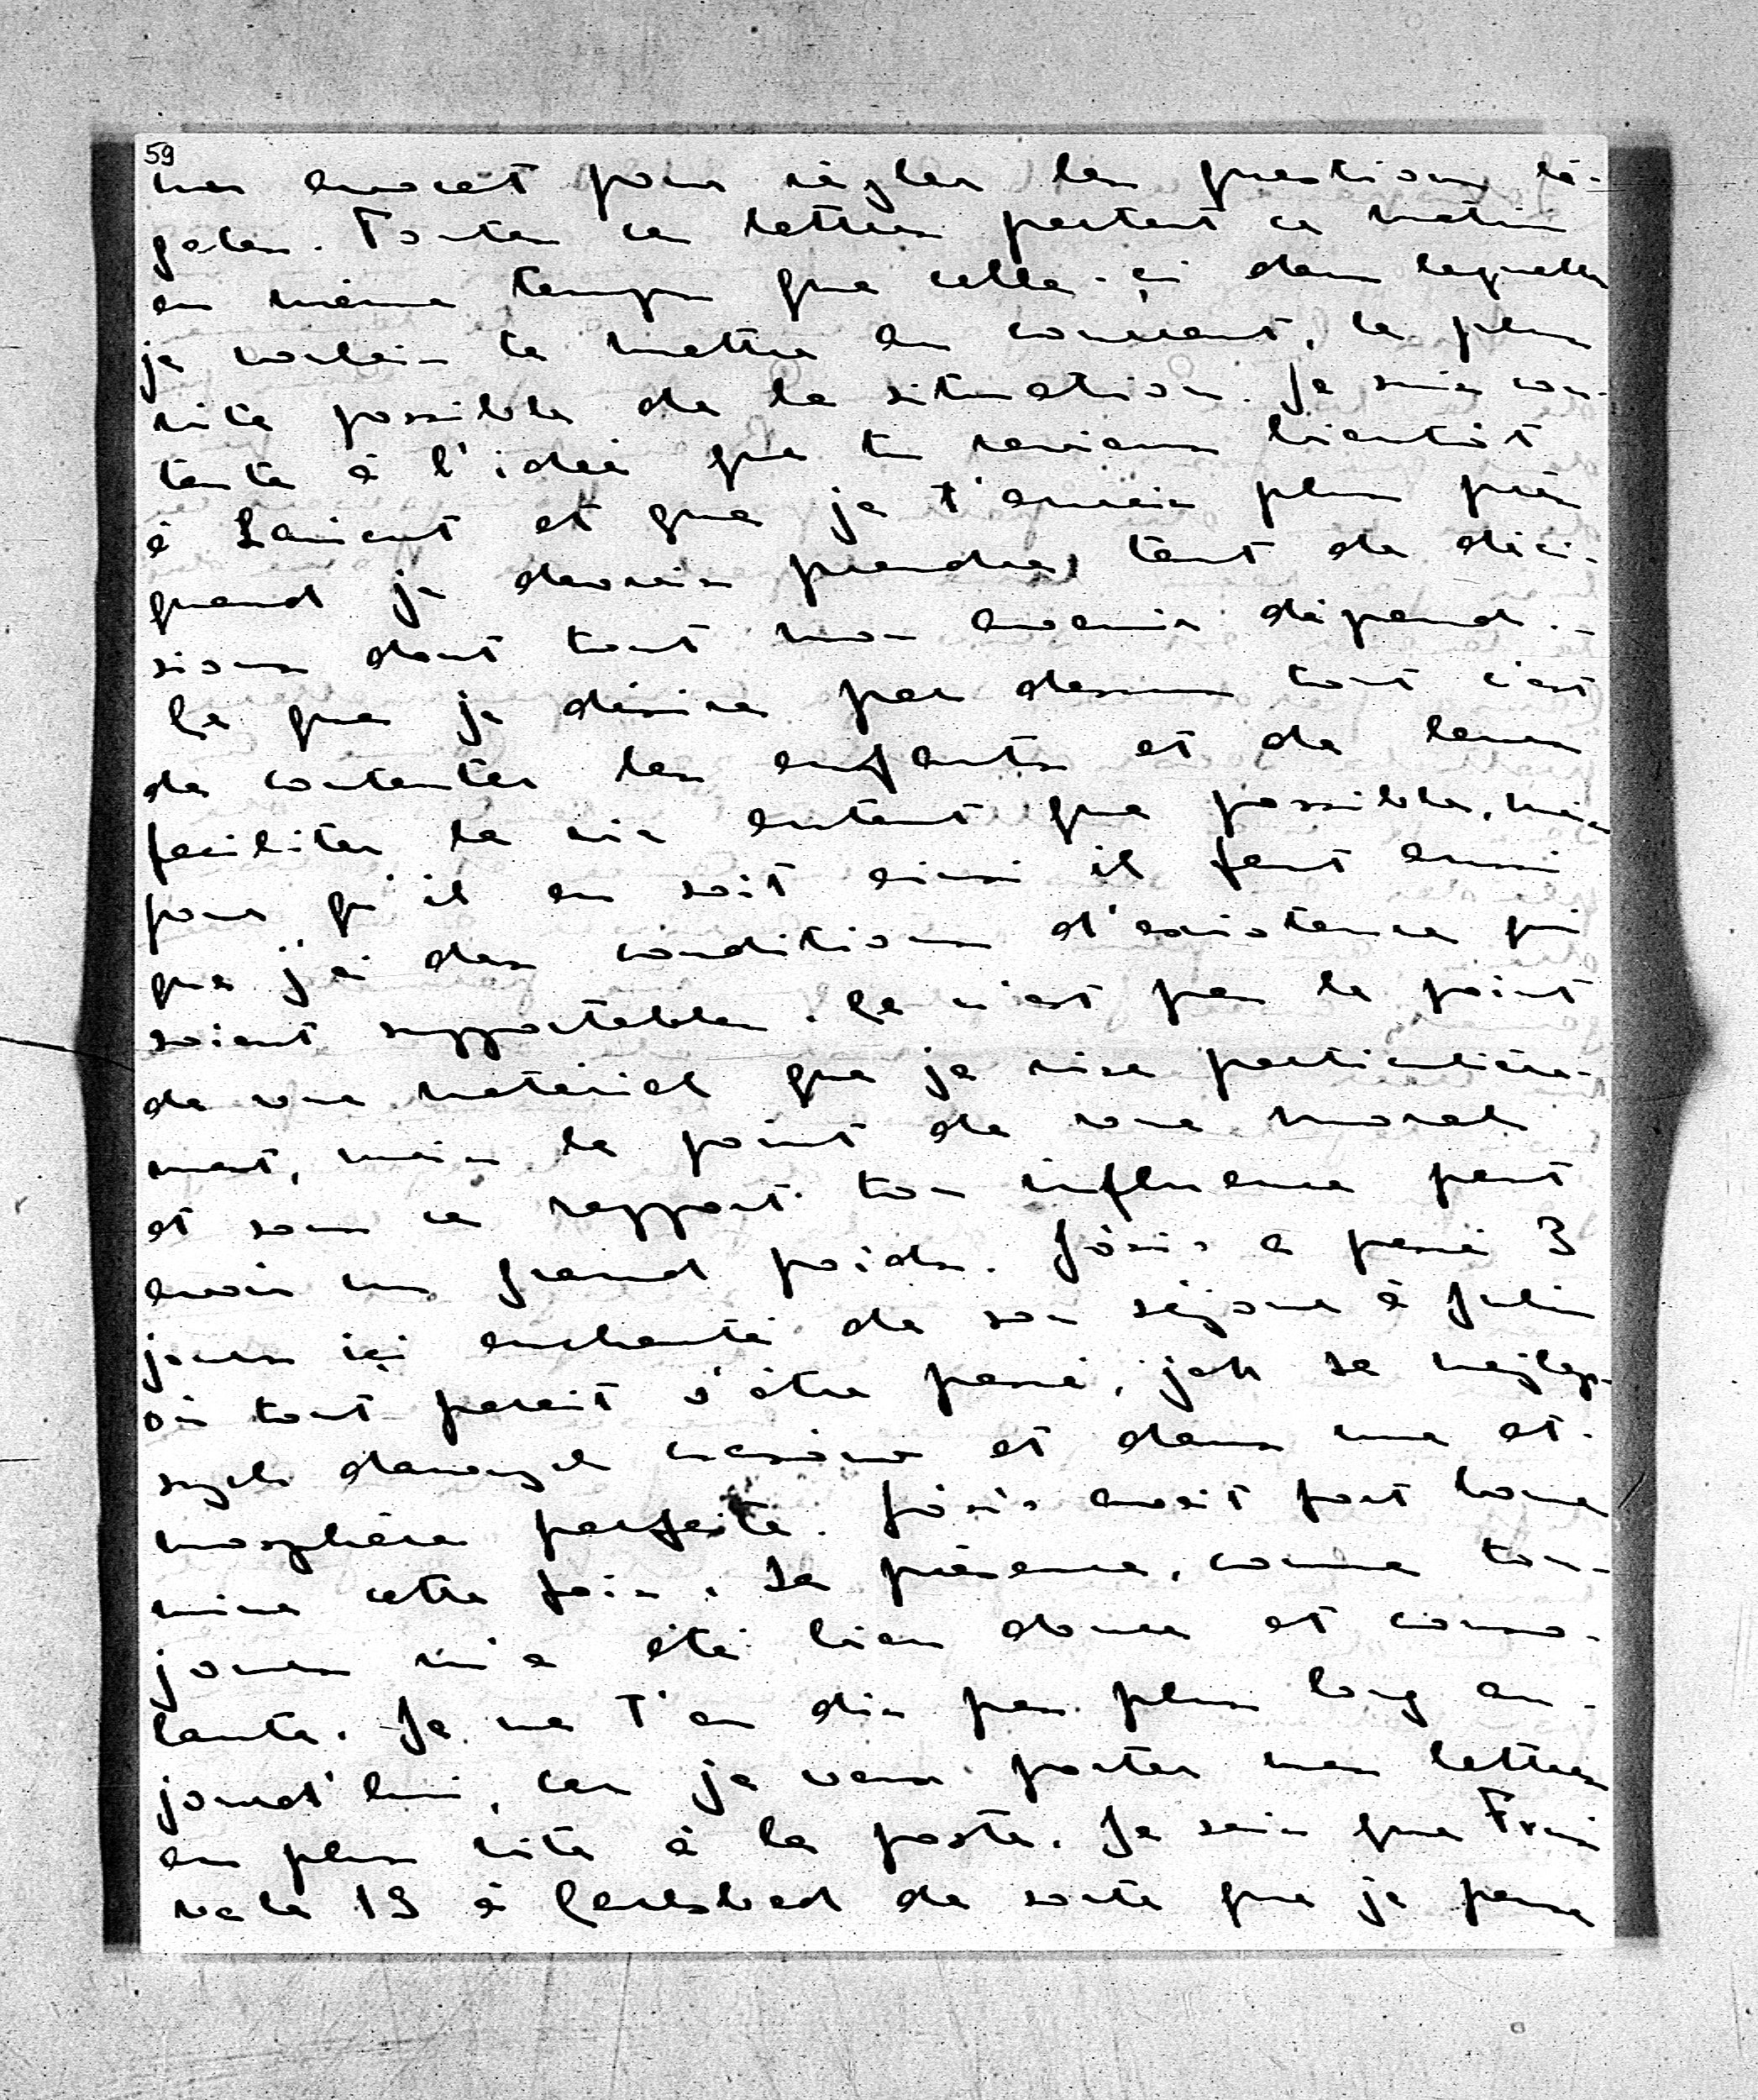 59
un avocat pour régler les questions lé-
gales. Toutes ces lettres partent ce matin
en même temps que celle-çi dans laquelle
je voulais te mettre au courrant, le plus
vite possible de la situation. Je suis con-
tente à l'idée que tu reviens bientôt
à Lanicut et que je t'aurais plus près
quand je devrais prendre tant de déci-
sions dont tout mon avenir dépend. -
Ce que je désire par dessus tout c'est
de contenter les enfants et de leur
faciliter la vie autant que possible, mais
pour qu'il en soit ainsi il faut aussi
que j'ai des conditions d'existence qui
soient supportables. Ce n'est pas le point
de vue matériel que je vise particulière-
ment, mais le point de vue moral
et sous ce rapport ton influence peut
avoir un grand poids. Józio a passé 3
jours içi enchanté de son séjour à Julin
où tout parait s'être passé, jak za najlep-
szych dawnych czasów et dans une at-
mosphère parfaite. Józio avait fort bonne
mine cette fois. Sa présence, comme tou-
jours m'a été bien douce et conso-
lante. Je ne t'en dis pas plus long au-
jourd'hui, car je veux porter mes lettres
au plus vite à la poste. Je sais que
va le 19 à Carlsbad de sorte que je pense